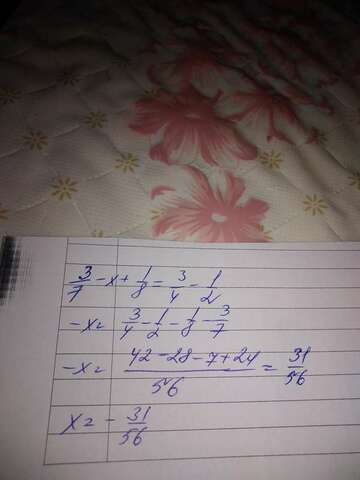 3/7 - x + 1/8 = 3/4 - 1/2
-x = 3/4 - 1/2 - 1/8 - 3/7
-x = (42 - 28 - 7 + 24)/56 = 31/56
x = - 31/56